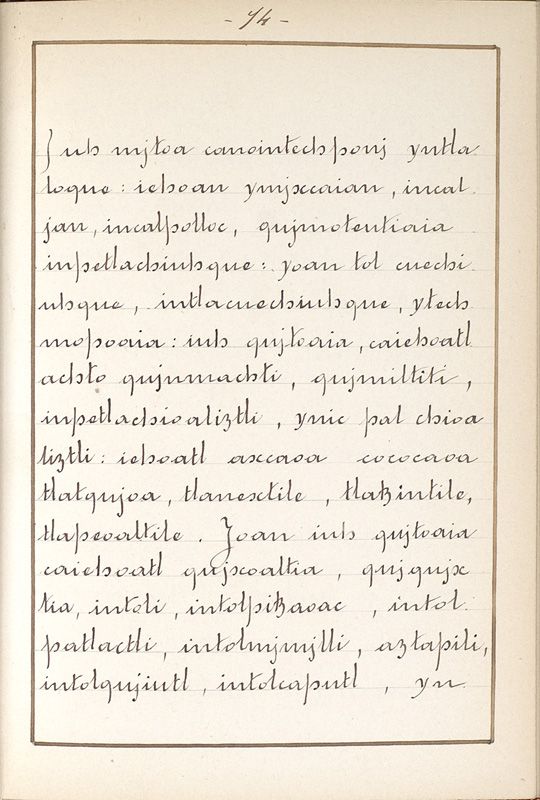 - 74 -
Juh mjtoa canointechpovj yntla
loque: iehoan ynjxccaian, incal
jan, incalpolloc, qujmotentiaia
inpetlachiuhque: yoan tol cuechi
uhque, intlacuechiuhque, ytech
mopoaia: iuh qujtoaia, caiehoatl
achto qujnmachti, qujmiltiti,
inpetlachioaliztli, ynic pal chioa
liztli: iehoatl axcaoa cococaoa
tlatqujoa, tlanextile, tlatzintile,
tlapeoaltile. Joan iuh qujtoaia
caiehoatl qujxoaltia, qujqujx
tia, intoli, intolpitzaoac, intol
patlactli, intolmjmjlli, aztapili,
intolqujiutl, intolcaputl, yn